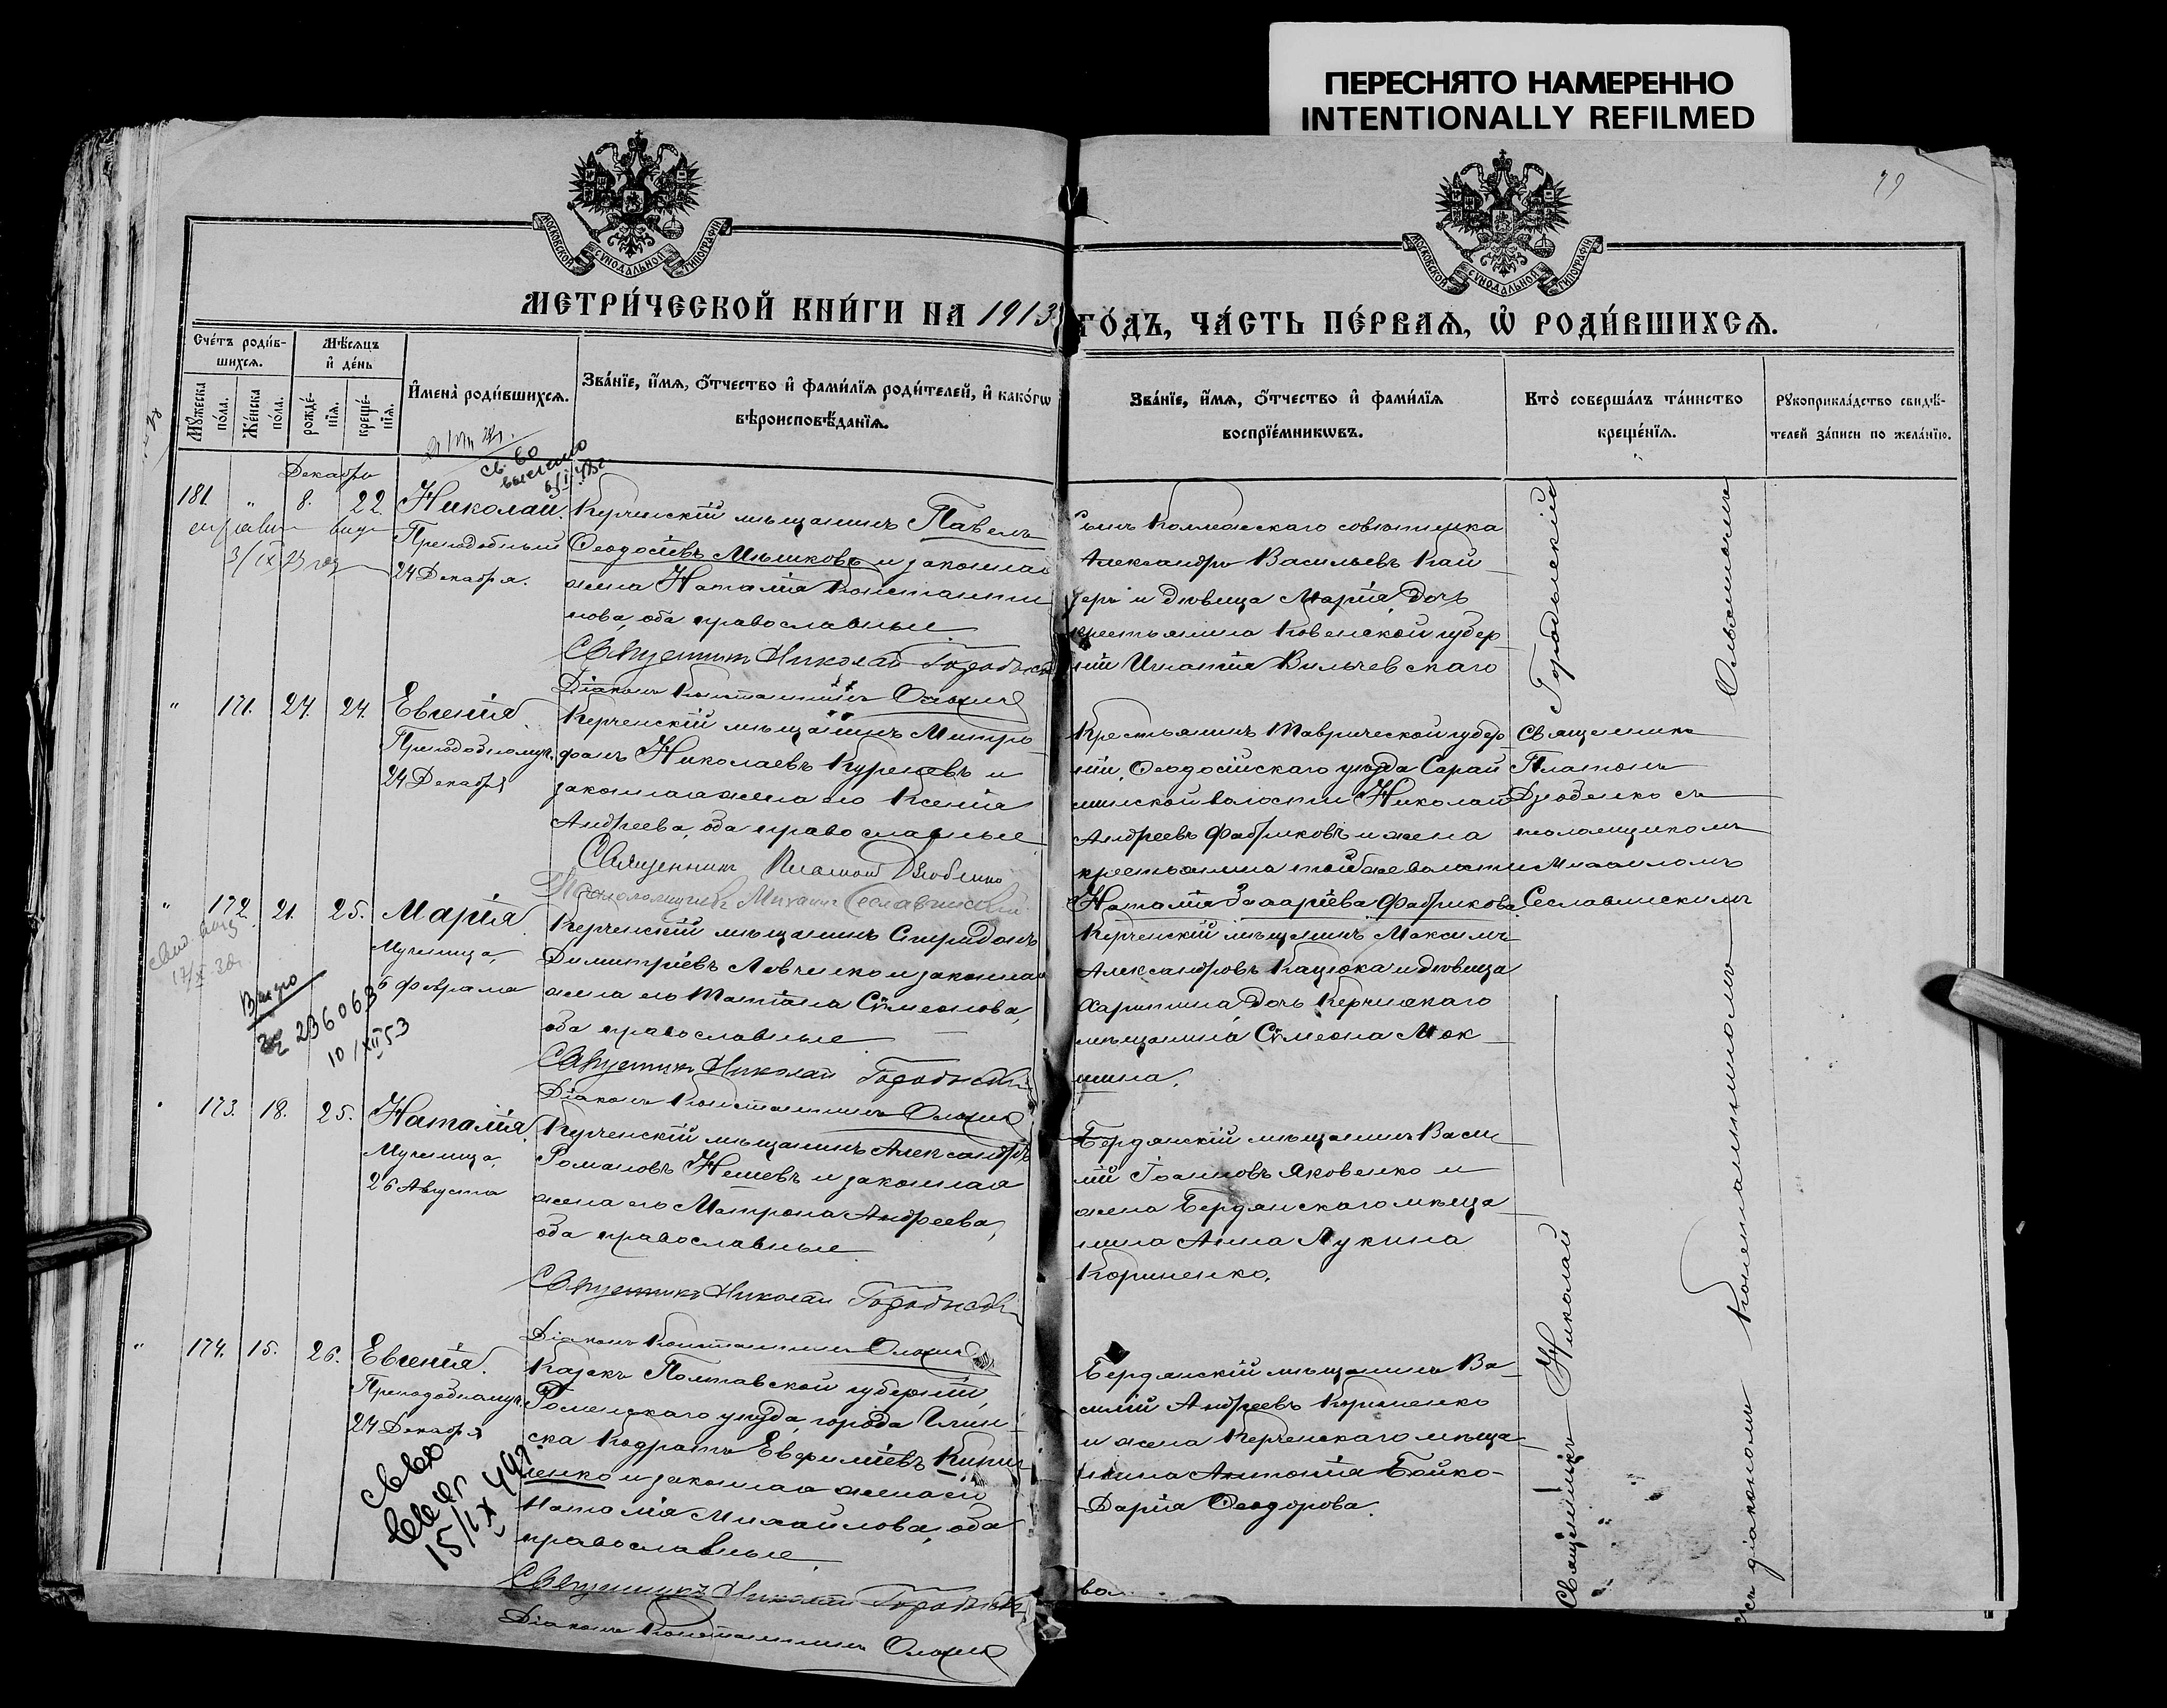 ПЕРЕСНЯТО НАМЕРЕННО
INTENTIONALLY REFILMED
МОСКОВСКОЙ СУНОДАЛЬНОЙ ТИПОГРАФІИ
МОСКОВСКОЙ СУНОДАЛЬНОЙ ТИПОГРАФІИ
МЕТРИ́ЧЕСКОЙ КНИ́ГИ НА 1913
ГО́ДЪ, ЧА́СТЬ ПЕ́РВАѦ, Ѡ҆ РОДИ́ВШИХСѦ.
Сче́тъ роди́в-
шихсѧ.
Мꙋ́жеска по́ла.
Же́нска по́ла.
Мѣ́сѧцъ
и҆ де́нь
рожде́-нїѧ.
креще́-нїѧ.
И҆мена̀ роди́вшихсѧ.
Зва́нїе, и҆́мѧ, ѻ҆́тчество и҆ фами́лїѧ роди́телей, и҆ како́гѡ
вѣроисповѣ́данїѧ.
Зва́нїе, и҆́мѧ, ѻ҆́тчество и҆ фами́лїѧ
воспрїе́мникѡвъ.
Кто̀ соверша́лъ та́инство
креще́нїѧ.
Рꙋкоприкла́дство свидѣ́-
телей за́писи по жела́нїю.
Декабрь
181. " 8. 22. Николай.
Преподобный
24 Декабря.
Керченскій мѣщанинъ Павелъ
Ѳеодосіевъ Мѣшковъ и законная
жена Наталія Константи
нова, оба православные
Священникъ Николай Городынскій
Діаконъ Константинъ
Сынъ Коллежскаго совѣтника
Александръ Васильевъ Кай
зеръ и дѣвица Марія, дочь
крестьянина Ковенской губер
ніи Игнатія Вильчевскаго
" 171. 24. 24. Евгенія.
Преподобномуч.
24 Декабря
Керченскій мѣщанинъ Митро
фанъ Николаевъ Куреневъ и
законная жена его Ксенія
Андреева, оба православные
Священникъ Платонъ Дзюбенко
Псаломщикъ Михаилъ Сеславинскій
Крестьянинъ Таврической губер
ніи, Ѳеодосійскаго уѣзда Сарай
минской волости Николай
Андреевъ Фабриковъ и жена
крестьянина той же волости
Наталія Захаріева Фабрикова.
Священникъ
Платонъ
Дзюбенко съ
псаломщикомъ
Михаиломъ
Сеславинскимъ
" 172. 21. 25. Марія.
Мученица,
6 Февраля
17/X 30
236063
10/XII 53
Керченскій мѣщанинъ Спиридонъ
Димитріевъ Левченко и законная
жена его Татіана Сѵмеонова,
оба православные
Священникъ Николай Городынскій
Діаконъ Константинъ
Керченскій мѣщанинъ Максимъ
Александровъ Кацюка и дѣвица
Харитина, дочь Керченскаго
мѣщанина Сѵмеона Мок
шина.
173. 18. 25. Наталія.
Мученица,
26 Августа
Керченскій мѣщанинъ Александръ
Романовъ Нешевъ и законная
жена его Матрона Андреева,
оба православные
Священникъ Николай Городынскій
Діаконъ Константинъ
Бердянскій мѣщанинъ Васи
лій Іоанновъ Яковенко и
жена Бердянскаго мѣща
нина Анна Лукина
Кориненко.
" 174. 15. 26. Евгенія.
Преподобномуч.
24 Декабря
15/IX 49г
Казакъ Полтавской губерніи,
Роменскаго уѣзда, города Глин
ска Кодратъ Евфиміевъ Кири
ченко и законная жена его
Наталія Михайлова, оба
православные
Священникъ Николай Городынскій
Діаконъ Константинъ
Бердянскій мѣщанинъ Ва-
силій Андреевъ Кориненко
и жена Керченскаго мѣща
нина Антонія Бойко-
Дарія Ѳеодорова.
Священникъ Николай Городынскій
съ діакономъ Константиномъ